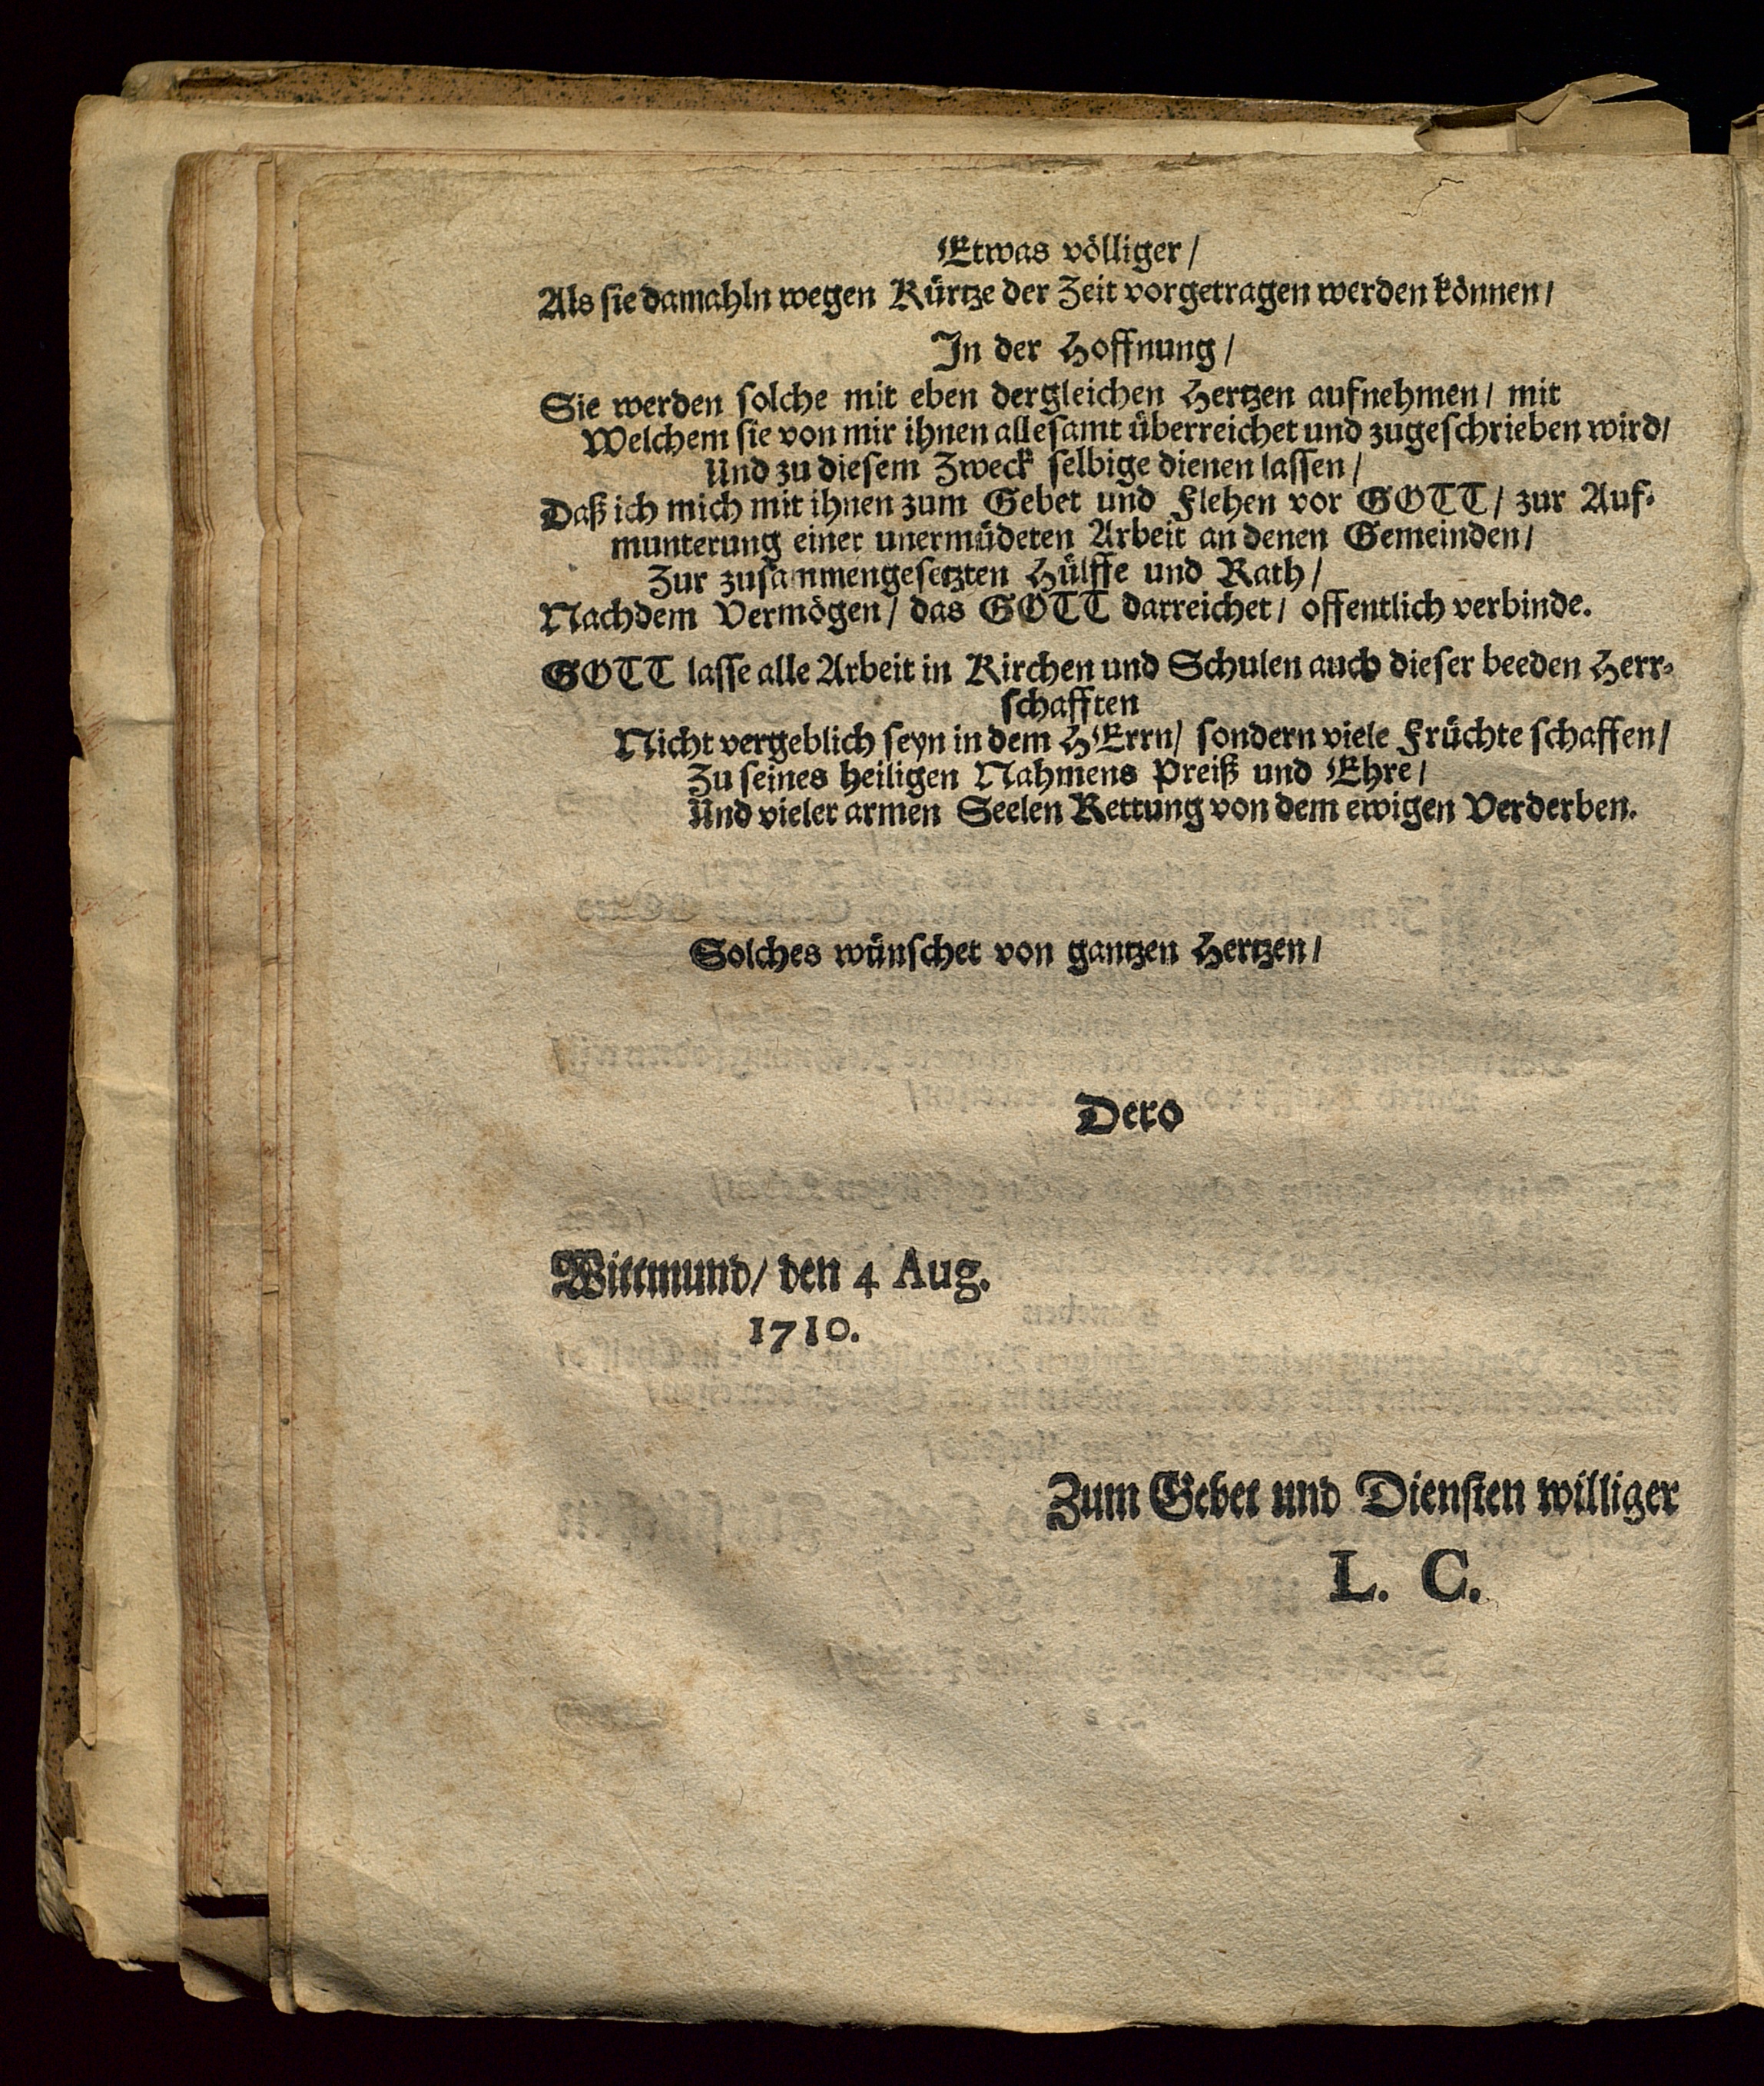 Etwas völliger/
Als sie damahln wegen Kürtze der Zeit vorgetragen werden können/
In der Hoffnung/
Sie werden solche mit eben dergleichen Hertzen aufnehmen/ mit
Welchem sie von mir ihnen allesamt überreichet und zugeschrieben wird/
Und zu diesem Zweck selbige dienen lassen/
Daß ich mich mit ihnen zum Gebet und Flehen vor GOTT/ zur Auf-
munterung einer unermüdeten Arbeit an denen Gemeinden/
Zur zusammengesetzten Hülffe und Rath/
Nachdem Vermögen/ das GOTT darreichet/ offentlich verbinde.
GOTT lasse alle Arbeit in Kirchen und Schulen auch dieser beeden Herr-
schafften
Nicht vergeblich seyn in dem HErrn/ sondern viele Früchte schaffen/
Zu seines heiligen Nahmens Preiß und Ehre/
Und vieler armen Seelen Rettung von dem ewigen Verderben.
Solches wünschet von gantzen Hertzen/
Dero
Wittmund/ den 4 Aug.
1710.
Zum Gebet und Diensten williger
L. C.